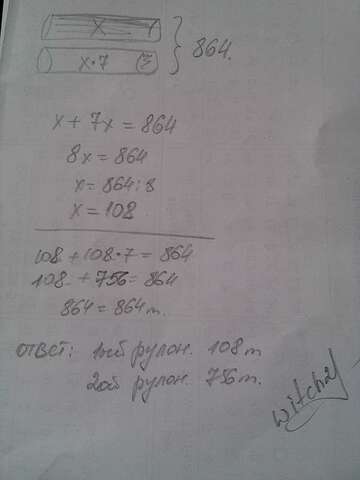 X
x·7
864.
x + 7x = 864
8x = 864
x = 864 : 8
x = 108
108 + 108·7 = 864
108 + 756 = 864
864 = 864 m.
ответ: 1ый рулон. 108 m
2ой рулон. 756 m.
witch21